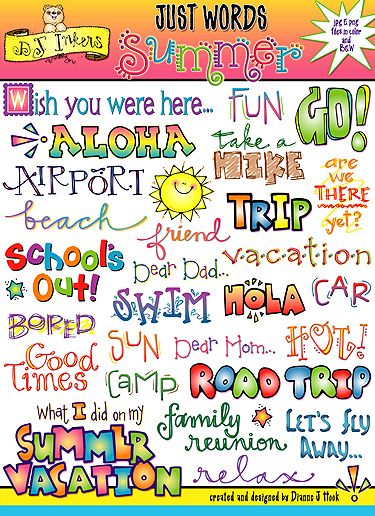 DJ Inkers
JUST WORDS
Summer
jpg & png
files in color
and
B&W
Wish you were here...
FUN
GO!
ALOHA
take a
HIKE
AIRPORT
are
we
THERE
yet?
TRIP
beach
friend
SCHOOL'S
OUT!
Dear Dad...
vacation
SWIM
HOLA
CAR
BORED
SUN
Dear Mom...
HOT!
Good
Times
CAMP
ROAD TRIP
WHAT I did on my
SUMMER
VACATION
family
reunion
LET'S fly
AWAY...
relax
created and designed by Dianne J Hook